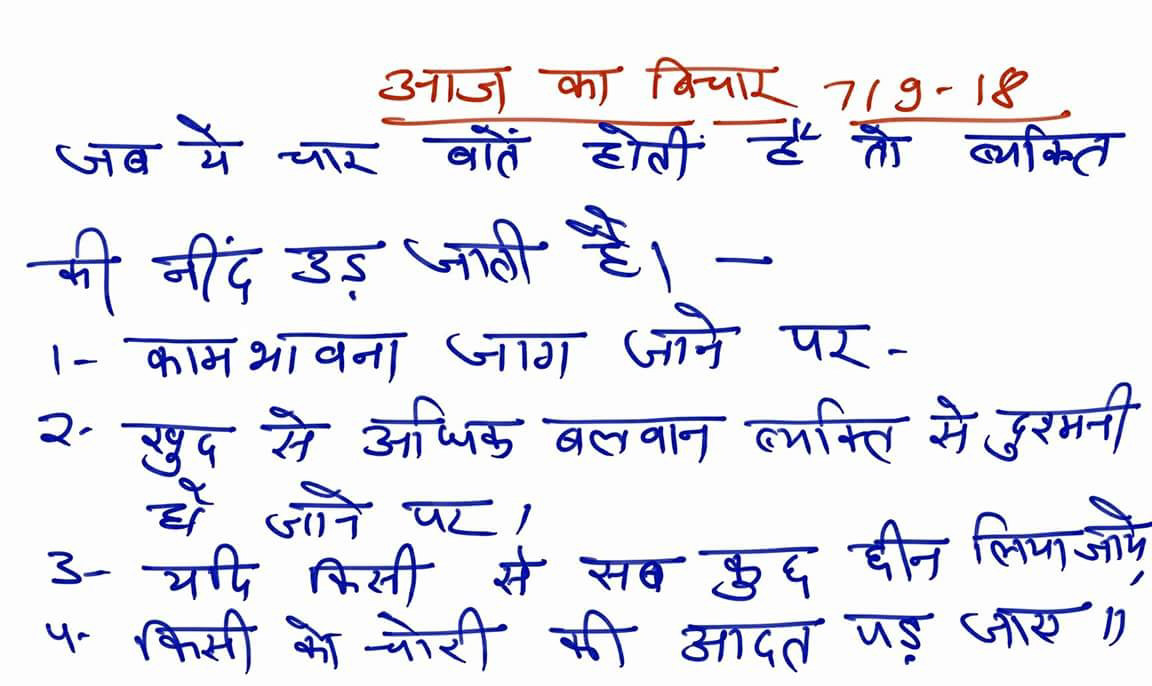 आज का विचार 7/9-18
जब ये चार बातें होतीं हैं तो व्यक्ति
की नींद उड़ जाती है। —
1- कामभावना जाग जाने पर -
2- खुद से अधिक बलवान व्यक्ति से दुश्मनी
हो जाने पर।
3- यदि किसी से सब कुछ छीन लिया जाये,
4- किसी को चोरी की आदत पड़ जाए ॥